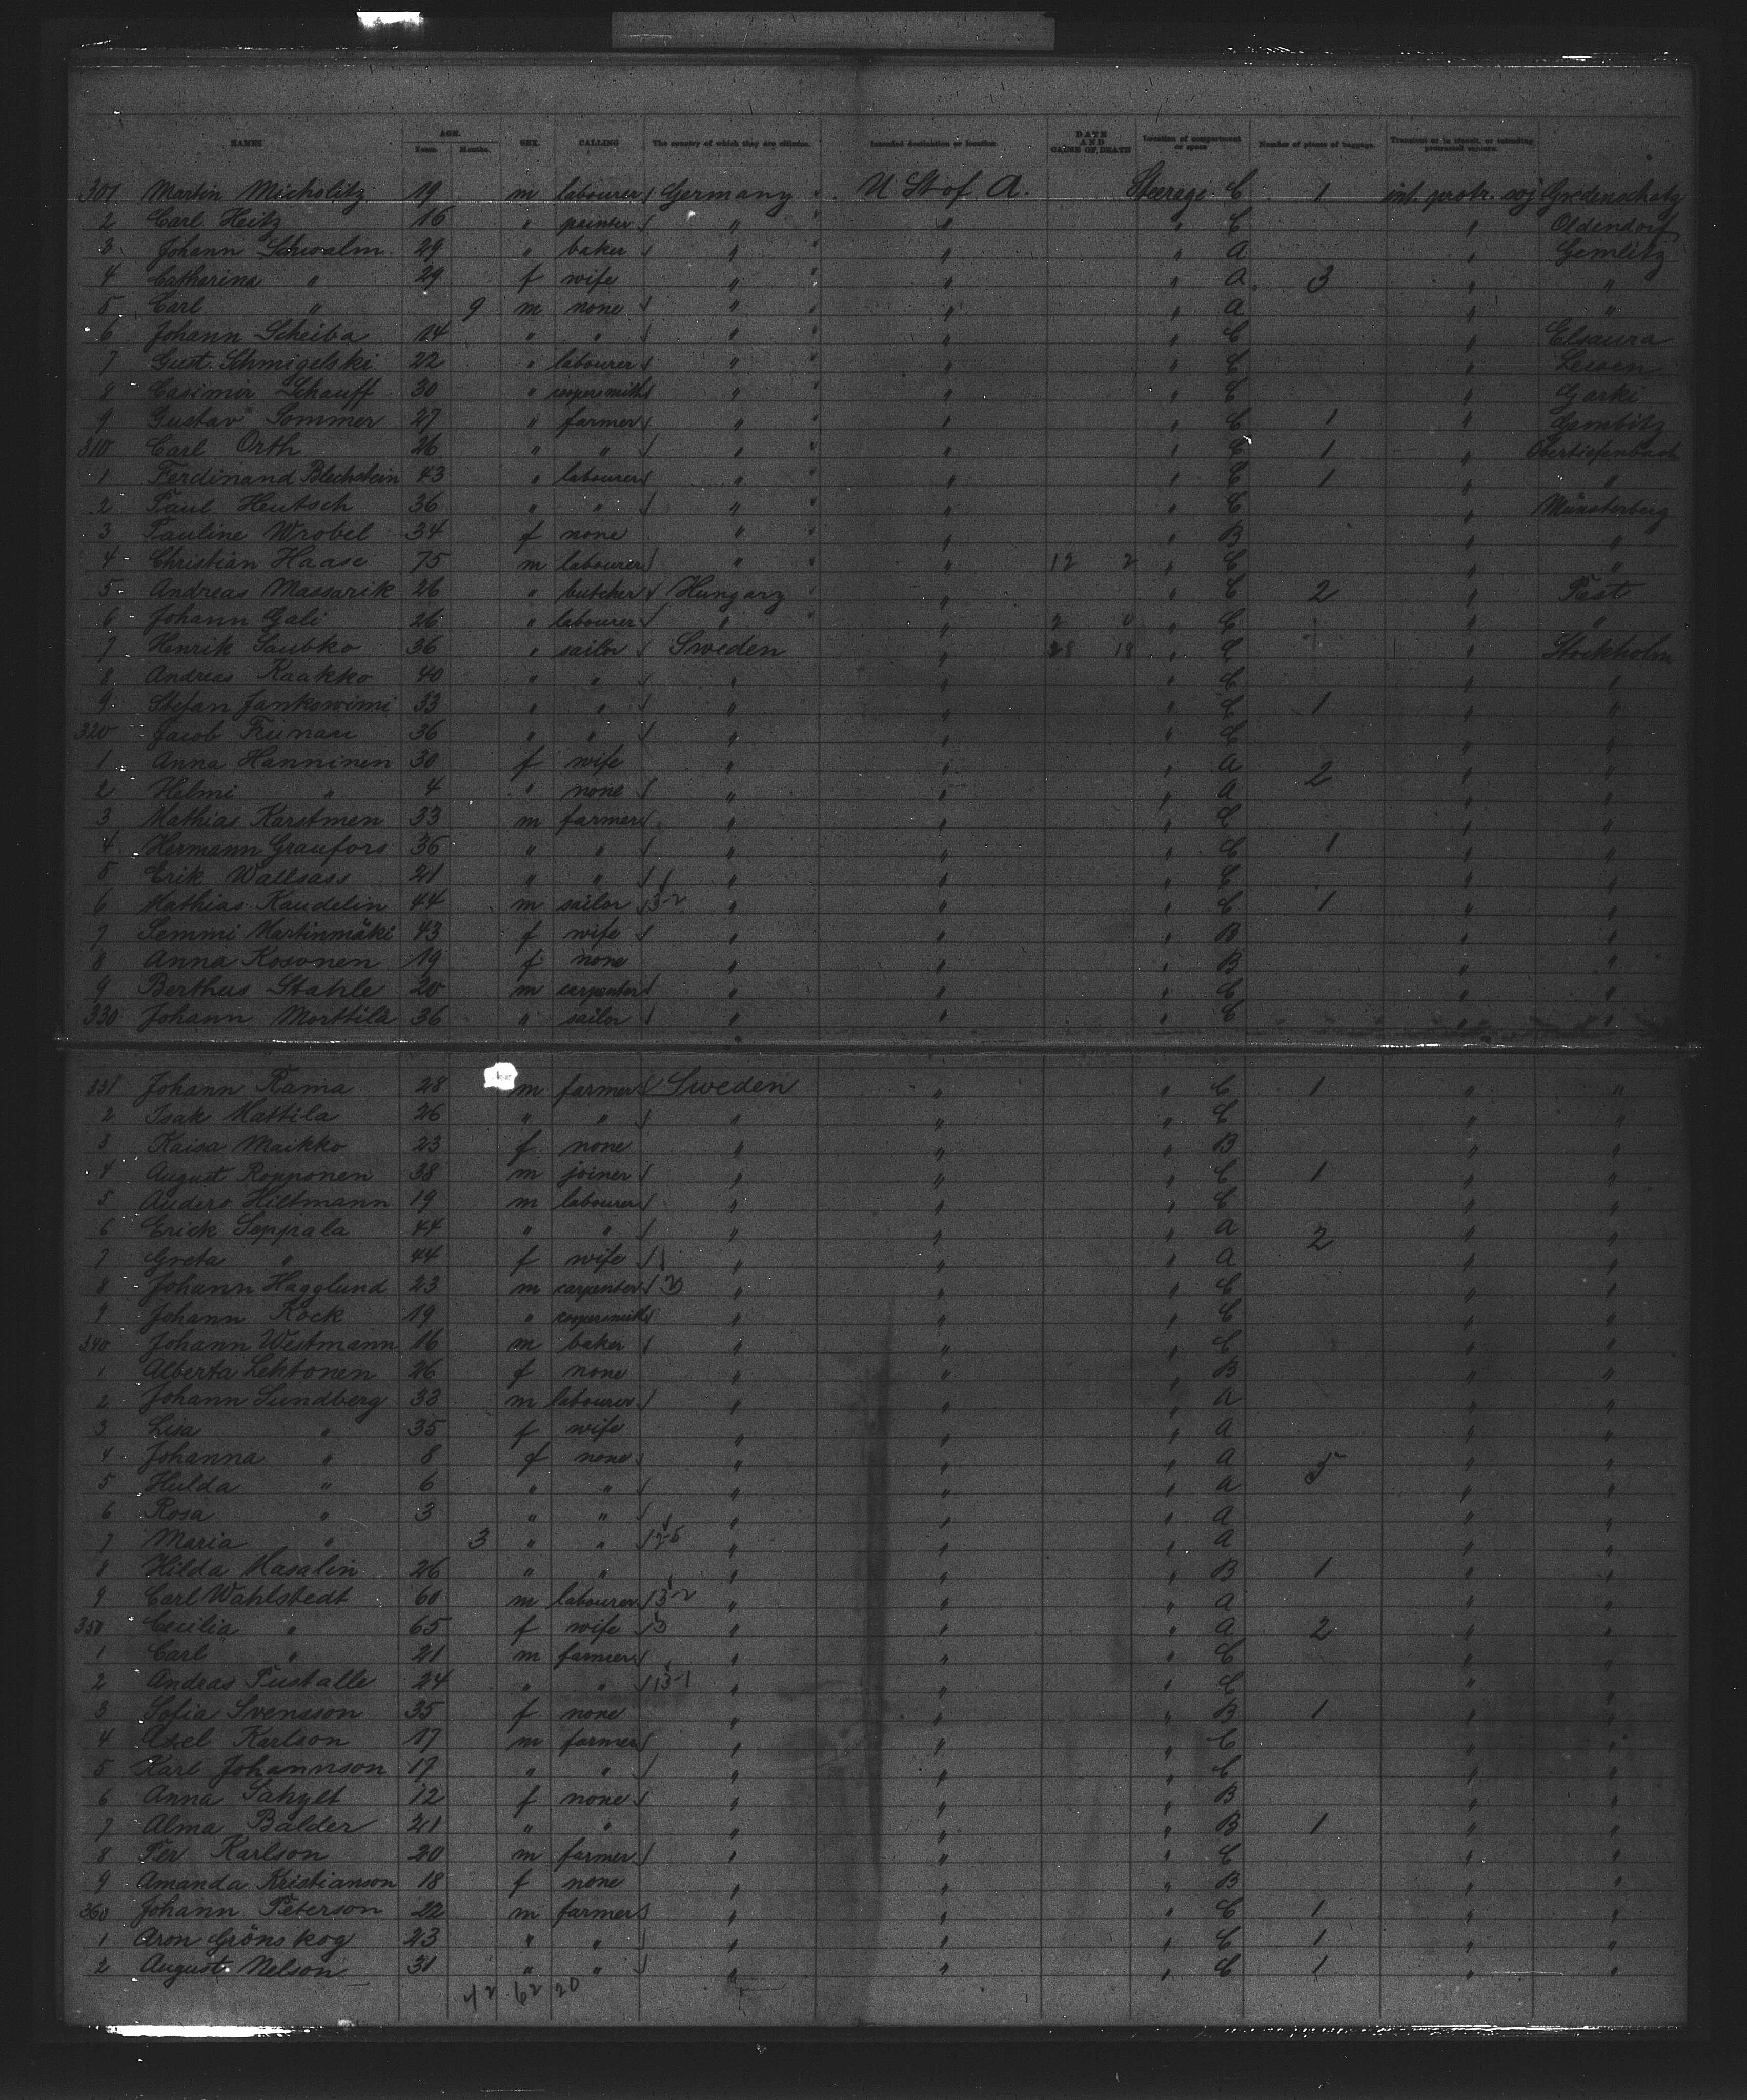 NAMES AGE. Years. Months. SEX. CALLING The country of which they are citizens. Intended destination or location. DATE AND CAUSE OF DEATH Location of compartment or space Number of pieces of baggage. Transient or in transit, or intending protracted sojourn.
301 Martin Micholitz 19 m labourer Germany U St of A. Steerage C 1 int. protr. soj
2 Carl Heitz 16 " painter " " " C " Oldendorf
3 Johann Schwalm 29 " baker " " " A " Gemlitz
4 Catharina " 29 f wife " " " A 3 " "
5 Carl " 9 m none " " " A " "
6 Johann Scheiba 14 " " " " " C " Elsaura
7 Gust. Schmigelski 22 " labourer " " " C " Lessen
8 Casimir Schauff 30 " coopersmith " " " C " Garki
9 Gustav Sommer 27 " farmer " " " C 1 " Gembitz
310 Carl Orth 26 " " " " " C 1 " Obertiefenbach
1 Ferdinand Blechstein 43 " labourer " " " C 1 " "
2 Paul Hentsch 36 " " " " " C " Münsterberg
3 Pauline Wrobel 34 f none " " " B " "
4 Christian Haase 75 m labourer " " 12 2 " C " "
5 Andreas Massarik 26 " butcher Hungary " " C 2 " Pest
6 Johann Gali 26 " labourer " " " C " "
7 Henrik Saubko 36 " sailor Sweden " 28 18 " C " Stockholm
8 Andreas Kaakko 40 " " " " " C " "
9 Stefan Jankowimi 33 " " " " " C 1 " "
320 Jacob 36 " " " " " C " "
1 Anna Hanninen 30 f wife " " " A 2 " "
2 Helmi " 4 " none " " " A " "
3 Mathias Karstmen 33 m farmer " " " C " "
4 Hermann Graufors 36 " " " " " C 1 " "
5 Erik Wallsass 21 " " " " " C " "
6 Mathias Kaudelin 44 m sailor 3-2 " " " C 1 " "
7 Semmi Martinmäki 43 f wife " " " B " "
8 Anna Kosonen 19 f none " " " B " "
9 Berthus Stahle 20 m carpenter " " " C " "
330 Johann Morttila 36 " sailor " " " C " "
331 Johann Rama 28 m farmer Sweden " " C 1 " "
2 Isak Mattila 26 " " " " " C " "
3 Kaisa Maikko 23 f none " " " B " "
4 August Ropponen 38 m joiner " " " C 1 " "
5 Anders Hiltmann 19 m labourer " " " C " "
6 Erick Seppala 44 " " " " " A 2 " "
7 Greta " 44 f wife " " " A " "
8 Johann Hagglund 23 m carpenter " " " C " "
9 Johann Kock 19 " coopersmith " " " C " "
340 Johann Westmann 16 m baker " " " C " "
1 Alberta Lehtonen 26 f none " " " B " "
2 Johann Sundberg 33 m labourer " " " A " "
3 Lisa " 35 f wife " " " A " "
4 Johanna " 8 f none " " " A 5 " "
5 Hulda " 6 " " " " " A " "
6 Rosa " 3 " " " " " A " "
7 Maria " 3 " " " " " A " "
8 Hilda Masalin 26 " " " " " B 1 " "
9 Carl Wahlstedt 60 m labourer 3-2 " " " A " "
350 Cecilia " 65 f wife 3 " " " A 2 " "
1 Carl " 21 m farmer " " " C " "
2 Andras Pustalle 24 " " 3-1 " " " C " "
3 Sofia Svensson 35 f none " " " B 1 " "
4 Axel Karlson 17 m farmer " " " C " "
5 Karl Johannson 17 " " " " " C " "
6 Anna Sahylt 12 f none " " " B " "
7 Alma Balder 21 " " " " " B 1 " "
8 Per Karlson 20 m farmer " " " C " "
9 Amanda Kristianson 18 f none " " " B " "
360 Johann Peterson 22 m farmer " " " C 1 " "
1 Aron Grönskog 23 " " " " " C 1 " "
2 August Nelson 31 " " " " " C 1 " "
42 62 20